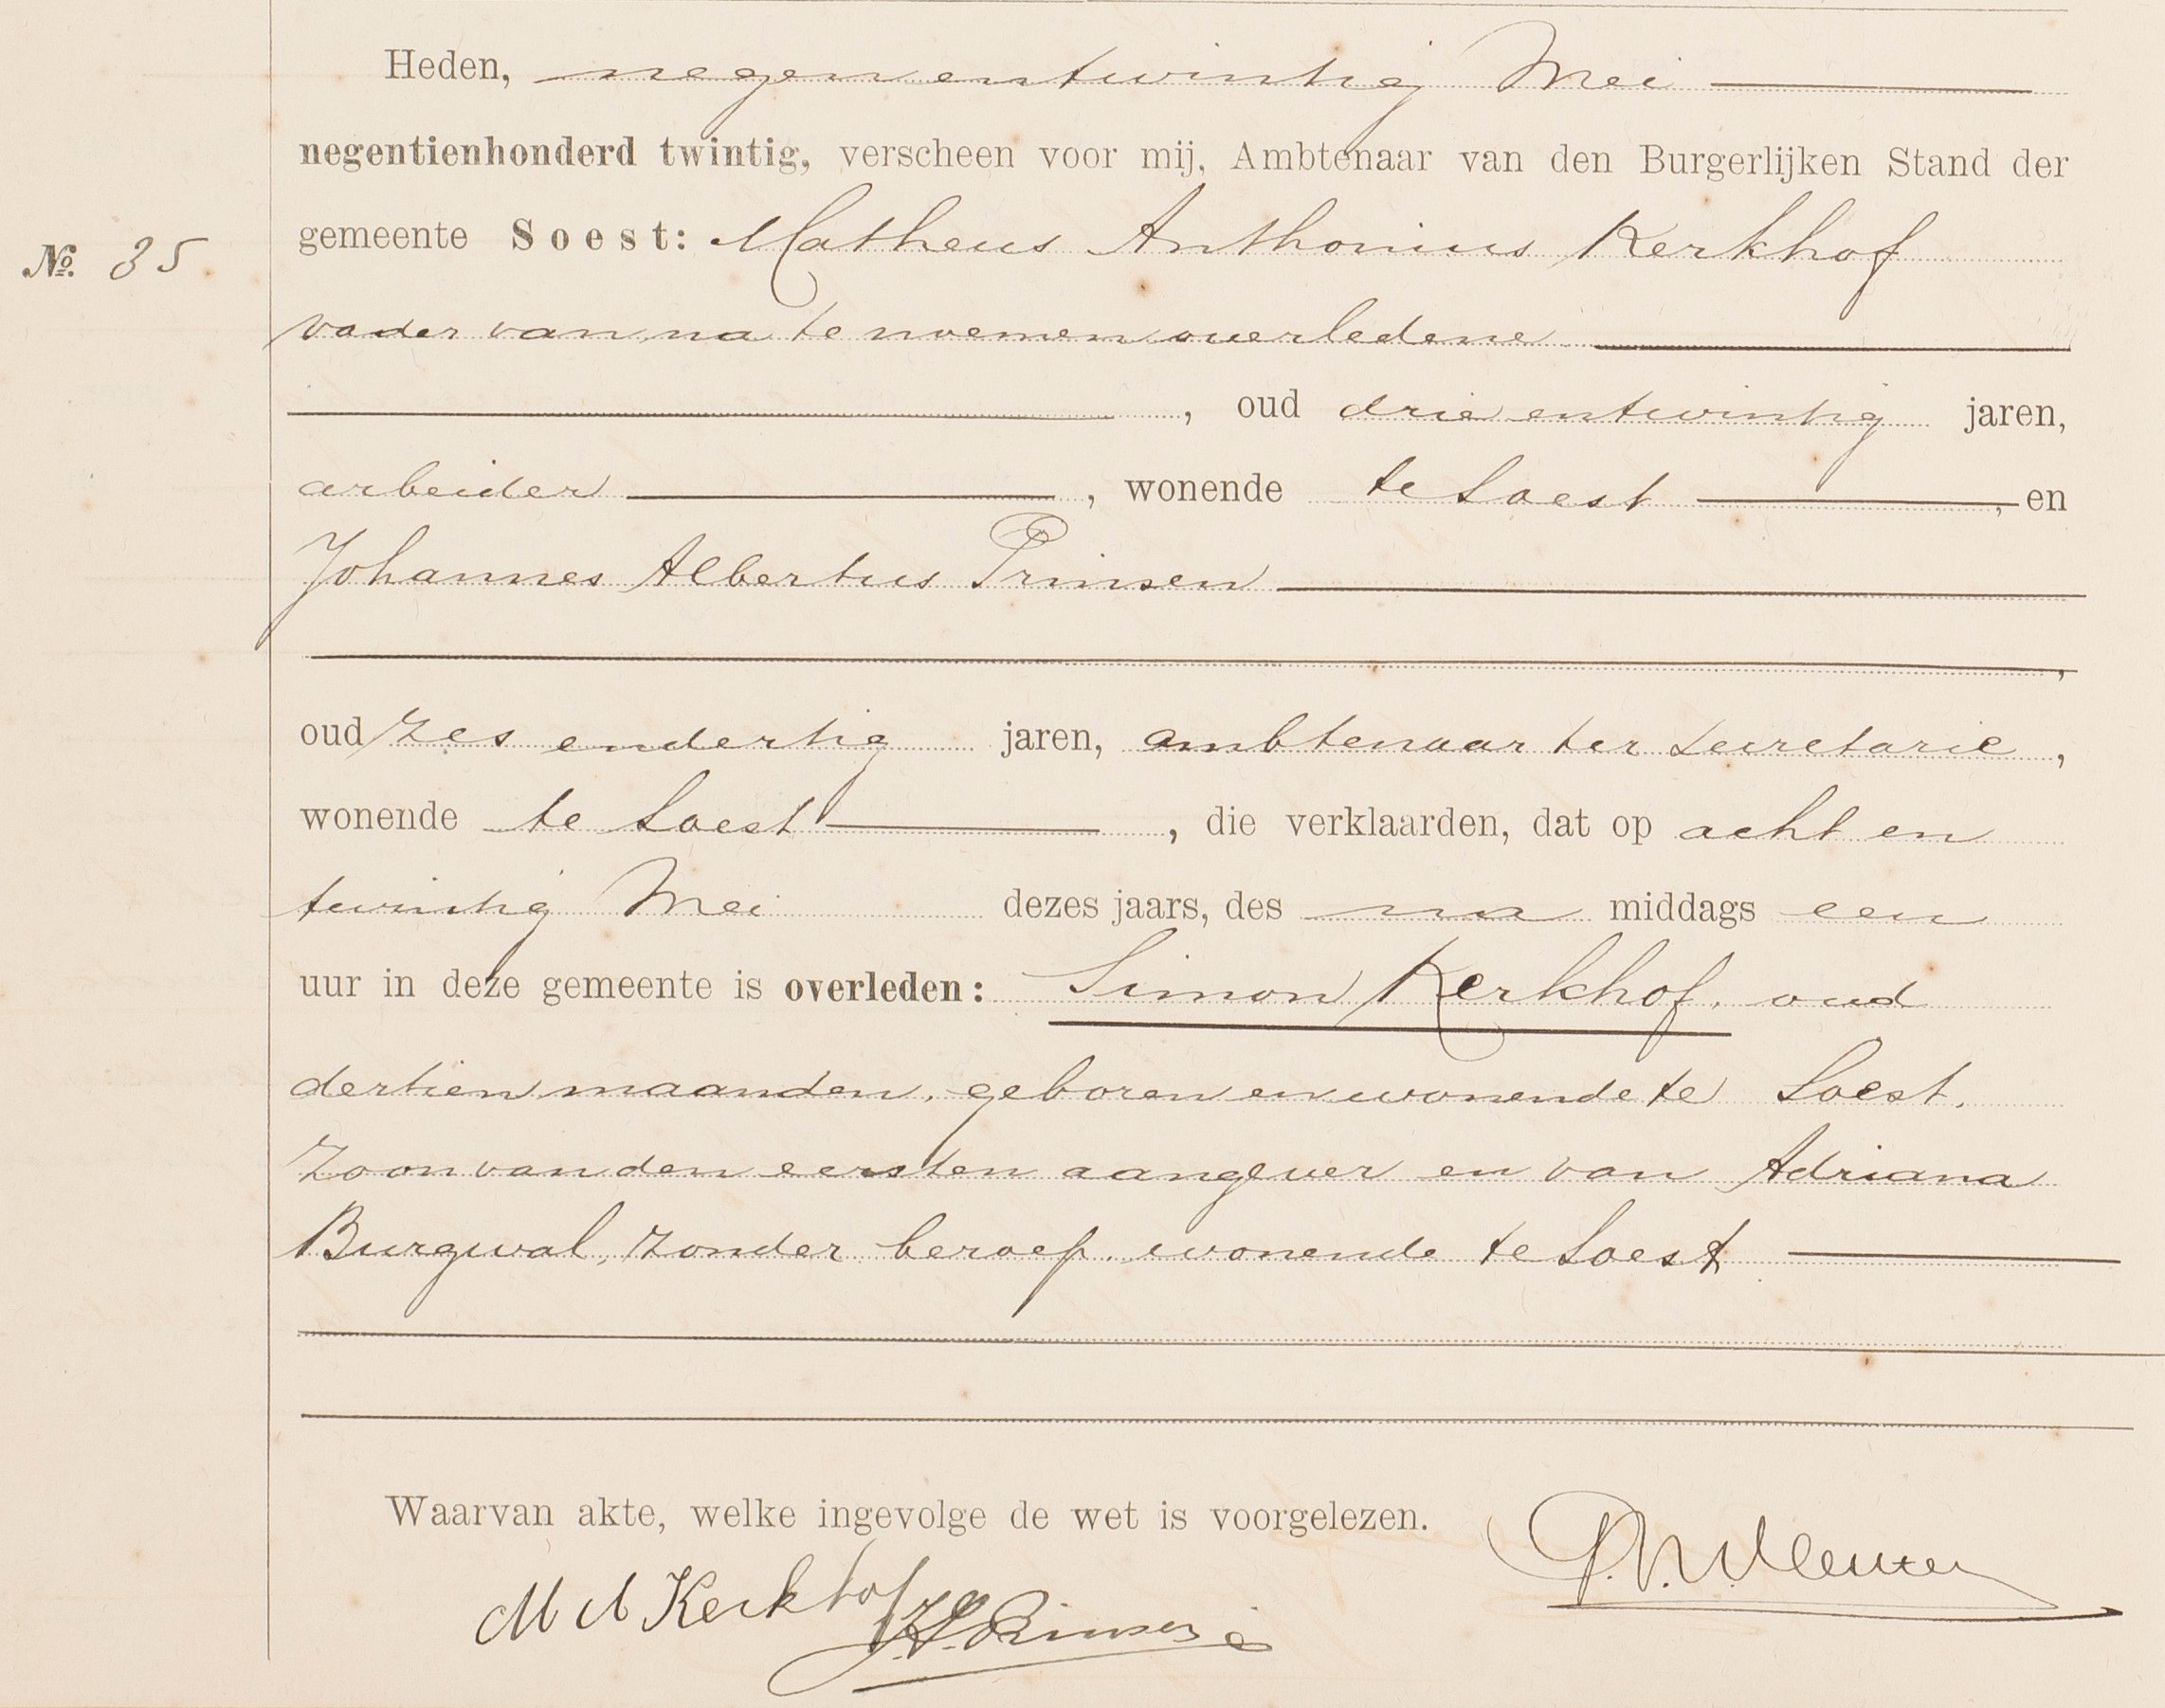 Heden, negen en twintig Mei
negentienhonderd twintig, verscheen voor mij, Ambtenaar van den Burgerlijken Stand der
No. 35
gemeente Soest: Matheus Anthonius Kerkhof
vader van na te noemen overledene
, oud drie en twintig jaren,
arbeider , wonende te Soest , en
Johannes Albertus Prinsen
,
oud zes en dertig jaren, ambtenaar ter secretarie ,
wonende te Soest , die verklaarden, dat op acht en
twintig Mei dezes jaars, des na middags een
uur in deze gemeente is overleden: Simon Kerkhof, oud
dertien maanden, geboren en wonende te Soest,
zoon van den eersten aangever en van Adriana
Burgwal, zonder beroep, wonende te Soest
Waarvan akte, welke ingevolge de wet is voorgelezen.
M A Kerkhof
J.A. Prinsen